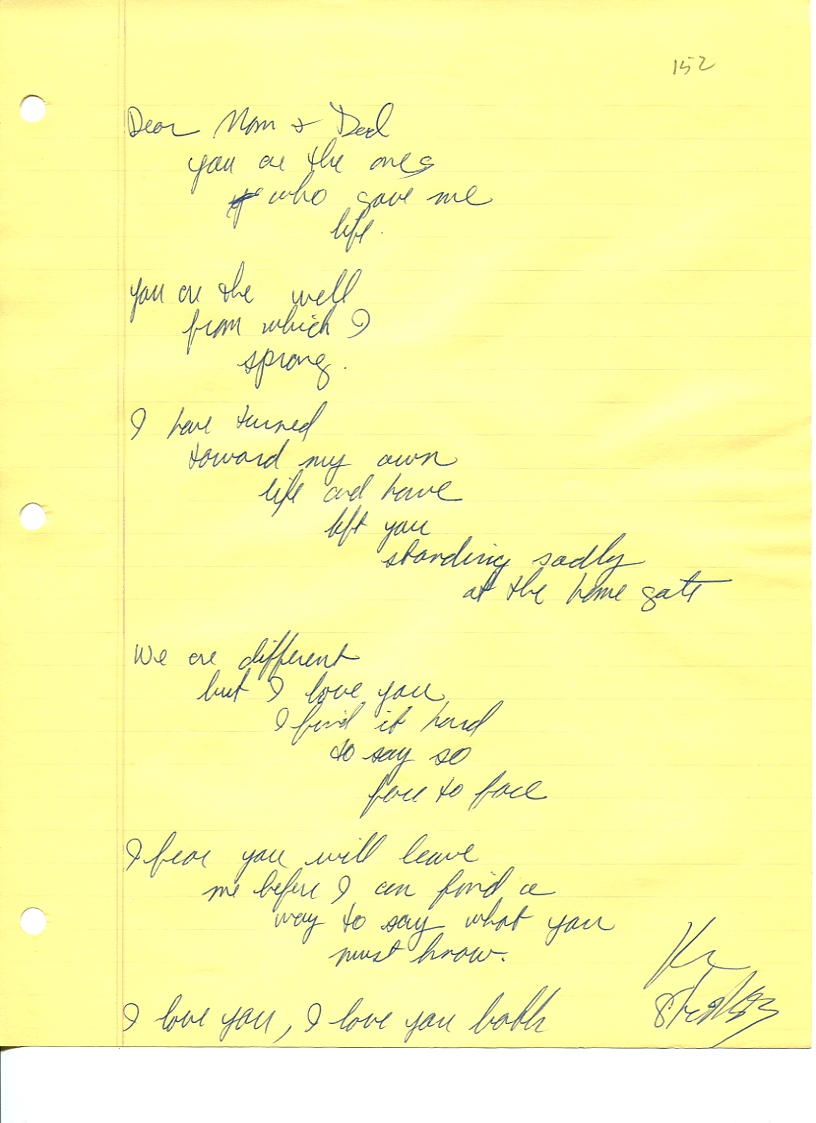 152
Dear Mom + Dad
you are the ones
who gave me
life.
you are the well
from which I
sprong.
I have turned
toward my own
life and have
left you
standing sadly
at the home gate
We are different
but I love you
I find it hard
to say so
face to face
I fear you will leave
me before I can find a
way to say what you
must know.
I love you, I love you both